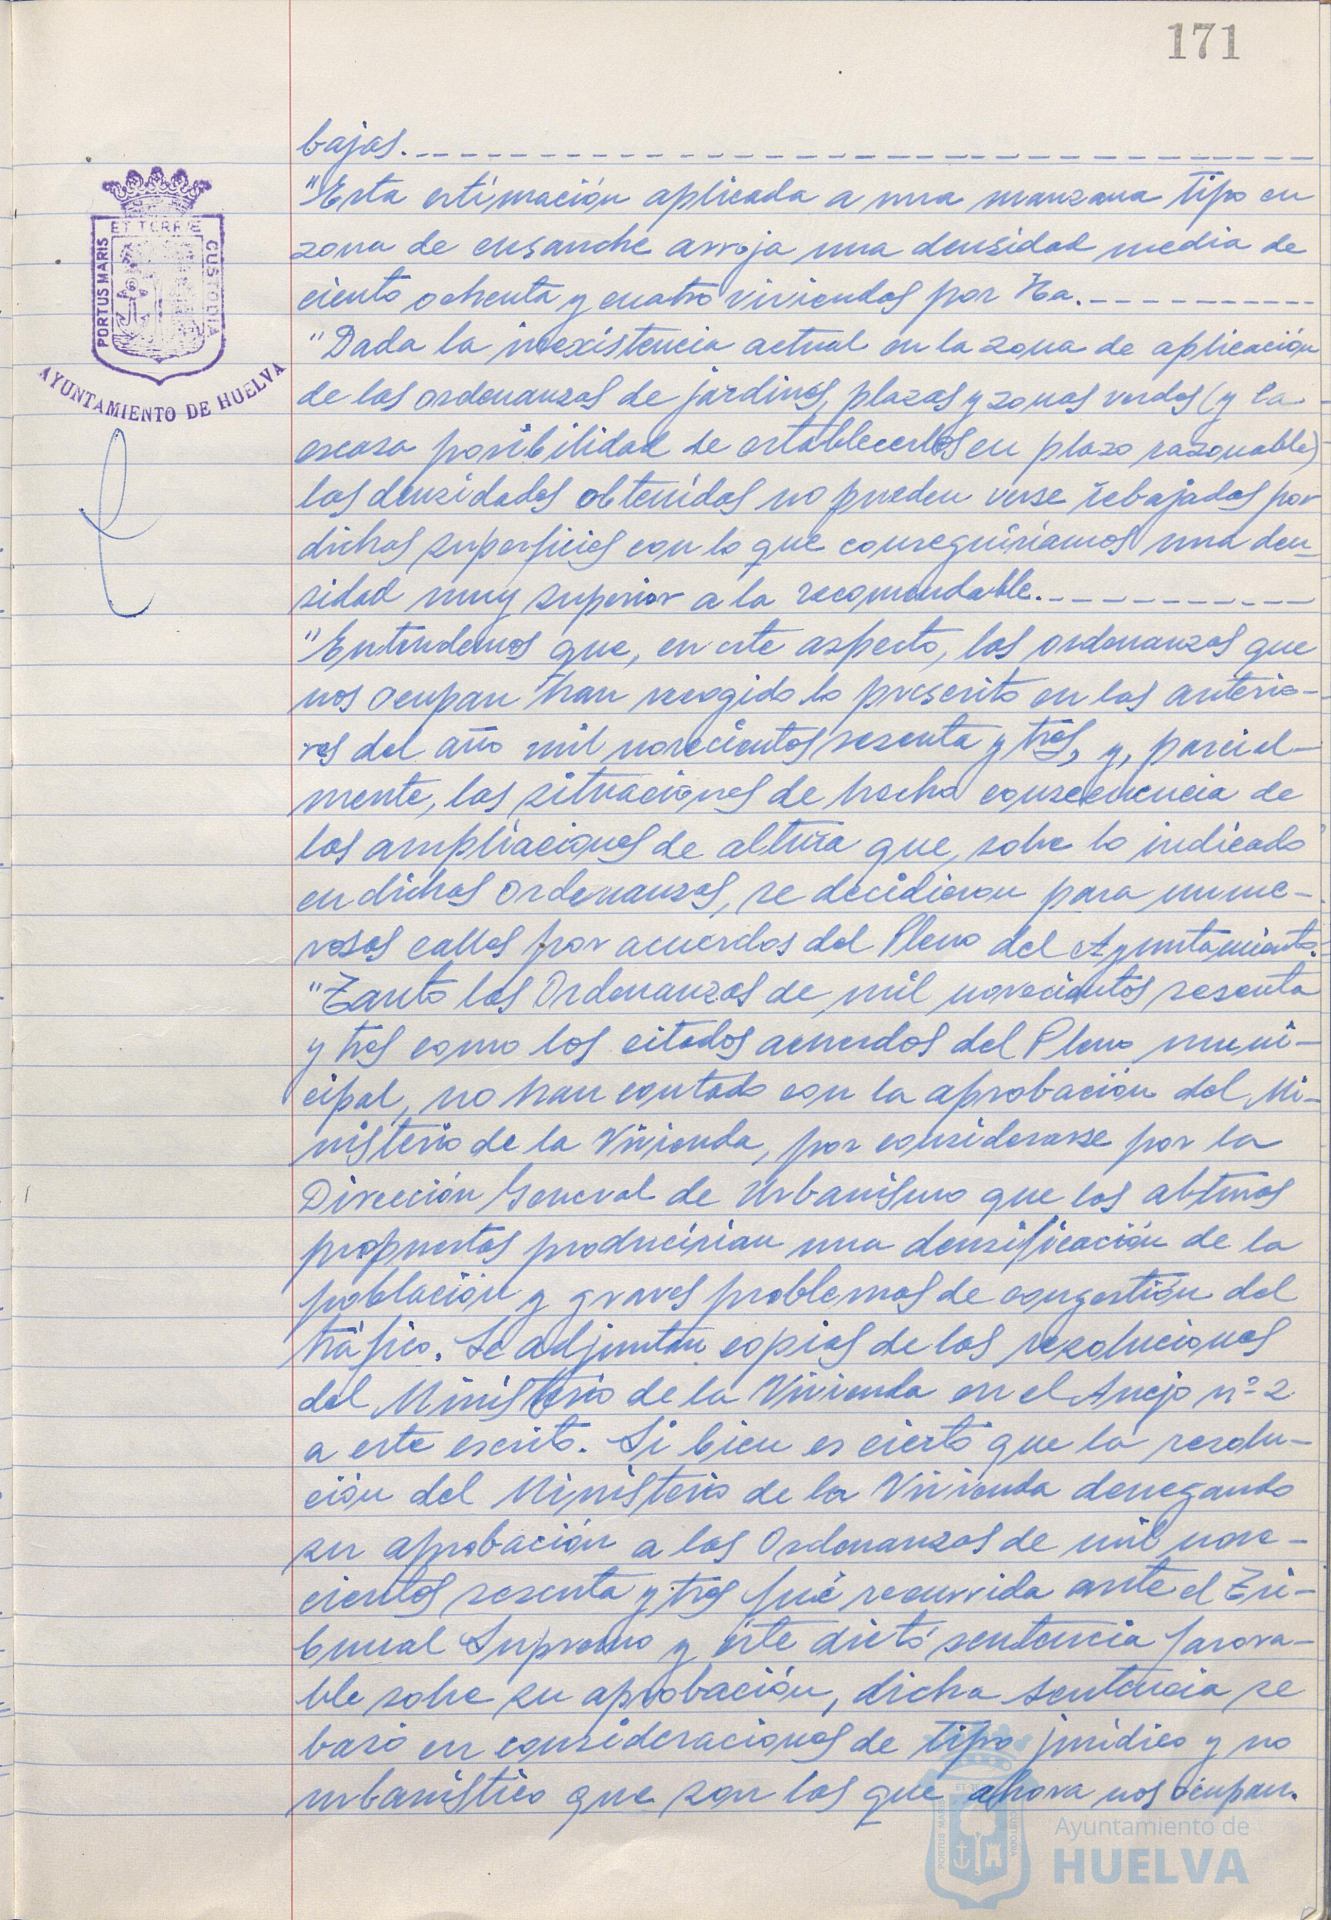 171
bajas.
"Esta estimación aplicada a una manzana tipo en
zona de ensanche arroja una densidad media de
ciento ochenta y cuatro viviendas por Ha.
"Dada la inexistencia actual en la zona de aplicación
de las ordenanzas de jardines, plazas y zonas verdes (y la
escasa posibilidad de establecerlos en plazo razonable)
las densidades obtenidas no pueden verse rebajadas por
dichas superficies con lo que conseguiriamos una den-
sidad muy superior a la recomendable.
"Entendemos que, en este aspecto, las ordenanzas que
nos ocupan han recogido lo prescrito en las anterio-
res del año mil novecientos sesenta y tres, y, parcial-
mente, las situaciones de hecho consecuencia de
las ampliaciones de altura que, sobre lo indicado
en dichas Ordenanzas, se decidieron para nume-
rosas calles por acuerdos del Pleno del Ayuntamiento.
"Tanto las Ordenanzas de mil novecientos sesenta
y tres como los citados acuerdos del Pleno muni-
cipal, no han contado con la aprobación del Mi-
nisterio de la Vivienda, por considerarse por la
Dirección General de Urbanismo que las alturas
propuestas producirian una densificación de la
población y graves problemas de congestión del
tráfico. Se adjuntan copias de las resoluciones
del Ministerio de la Vivienda en el Anejo nº 2
a este escrito. Si bien es cierto que la resolu-
ción del Ministerio de la Vivienda denegando
su aprobación a las Ordenanzas de mil nove-
cientos sesenta y tres fué recurrida ante el Tri-
bunal Supremo y éste dictó sentencia favora-
ble sobre su aprobación, dicha sentencia se
basó en consideraciones de tipo jurídico y no
urbanístico que son las que ahora nos ocupan.
PORTUS MARIS
ET TERRAE
CUSTODIA
AYUNTAMIENTO DE HUELVA
Ayuntamiento de
HUELVA